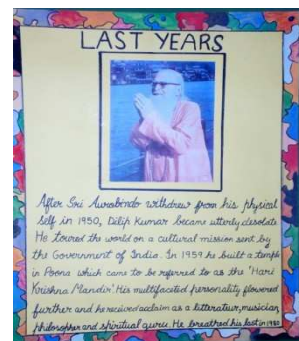 LAST YEARS
After Sri Aurobindo withdrew from his physical
self in 1950, Dilip Kumar became utterly desolate
He toured the world on a cultural mission sent by
the Government of India. In 1959 he built a temple
in Poona which came to be referred to as the 'Hari
Krishna Mandir'. His multifaceted personality flowered
further and he received acclaim as a litterateur, musician,
philosopher and spiritual guru. He breathed his last in 1980